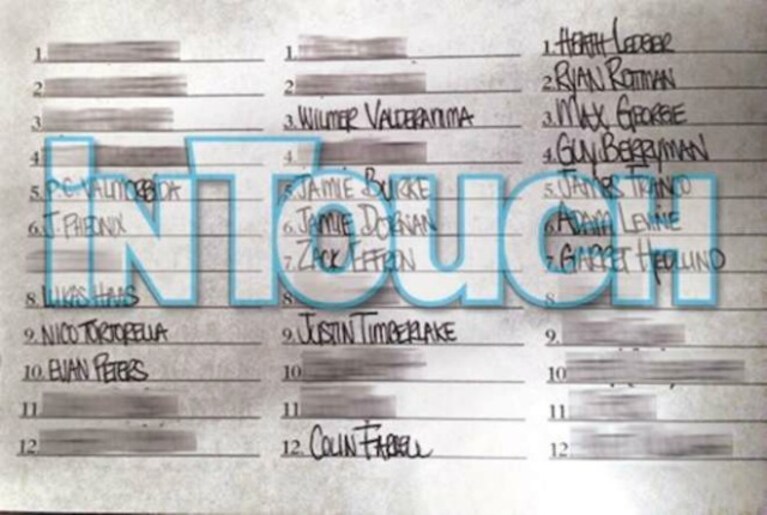 1.
2.
3.
4.
5. P.C. VALMORBIDA
6. J. PHEONIX
8. LUKAS HAAS
9. NICO TORTORELLA
10. EVAN PETERS
11
12
1.
2
3. WILMER VALDERAMMA
4.
5. JAMIE BURKE
6. JAMIE DORNAN
7. ZACK EFFRON
8
9. JUSTIN TIMBERLAKE
10
11
12. COLIN FARRELL
1. HEATH LEDGER
2. RYAN ROTTMAN
3. MAX GEORGE
4. GUY BERRYMAN
5. JAMES FRANCO
6. ADAM LEVINE
7. GARRET HEDLUND
8
9.
10
11
12
INTOUCH